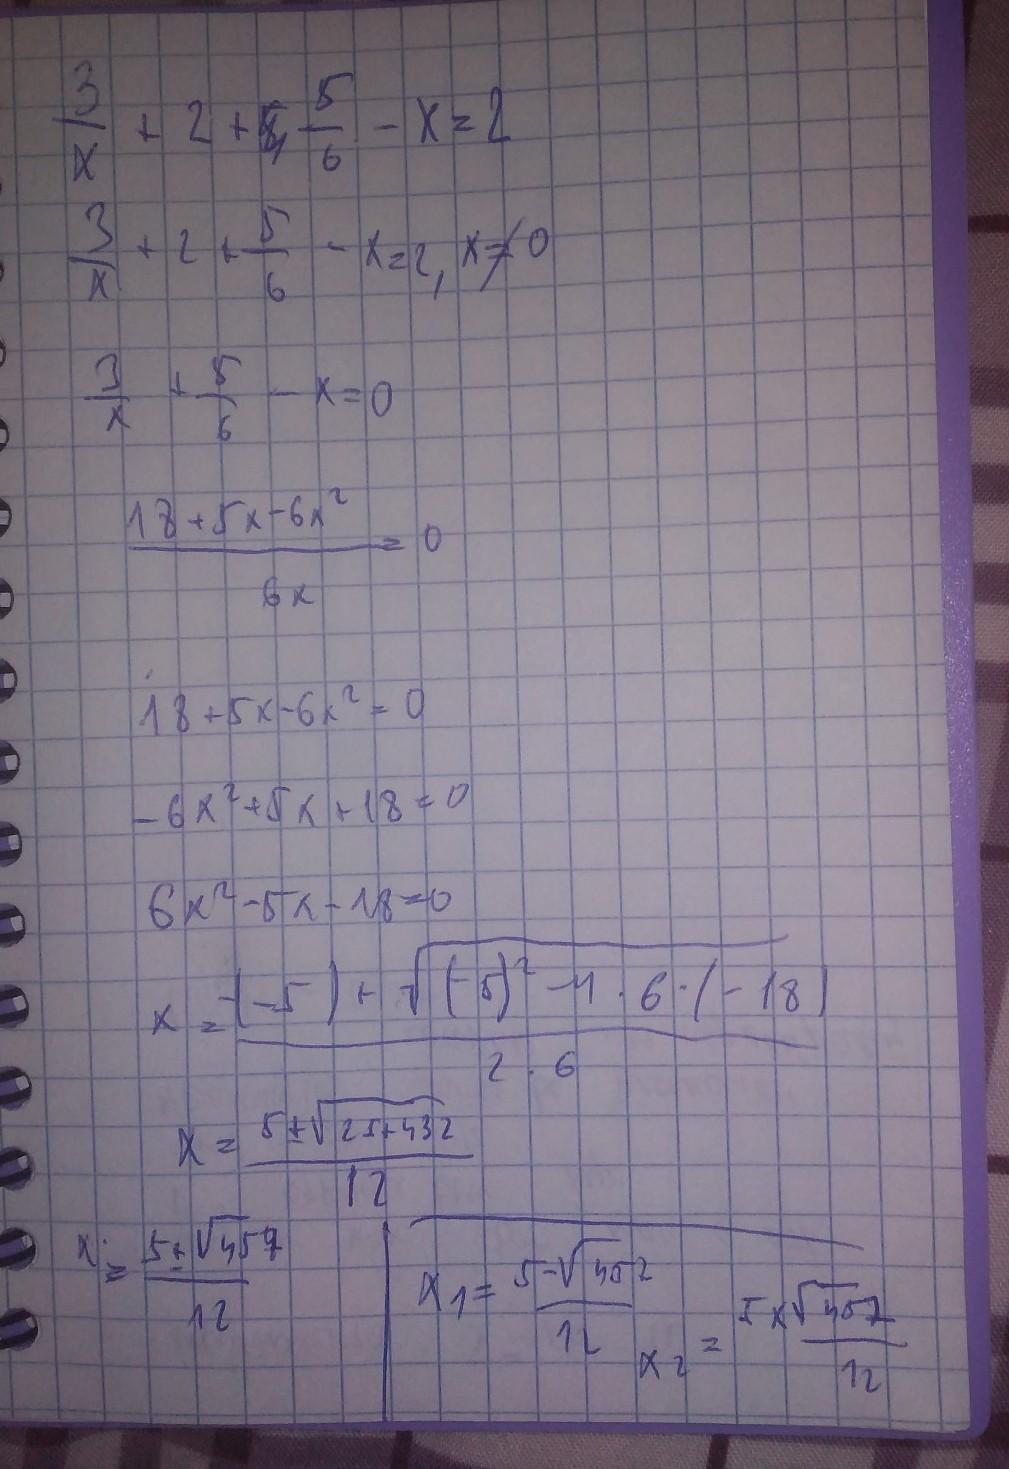 3/x + 2 + 5/6 - x = 2
3/x + 2 + 5/6 - x = 2, x ≠ 0
3/x + 5/6 - x = 0
(18 + 5x - 6x²)/6x = 0
18 + 5x - 6x² = 0
-6x² + 5x + 18 = 0
6x² - 5x - 18 = 0
x = (-(-5) + √((-5)² - 4 · 6 · (-18)))/(2 · 6)
x = (5 ± √(25 + 432))/12
x = (5 ± √457)/12
x₁ = (5 - √457)/12
x₂ = (5 + √457)/12